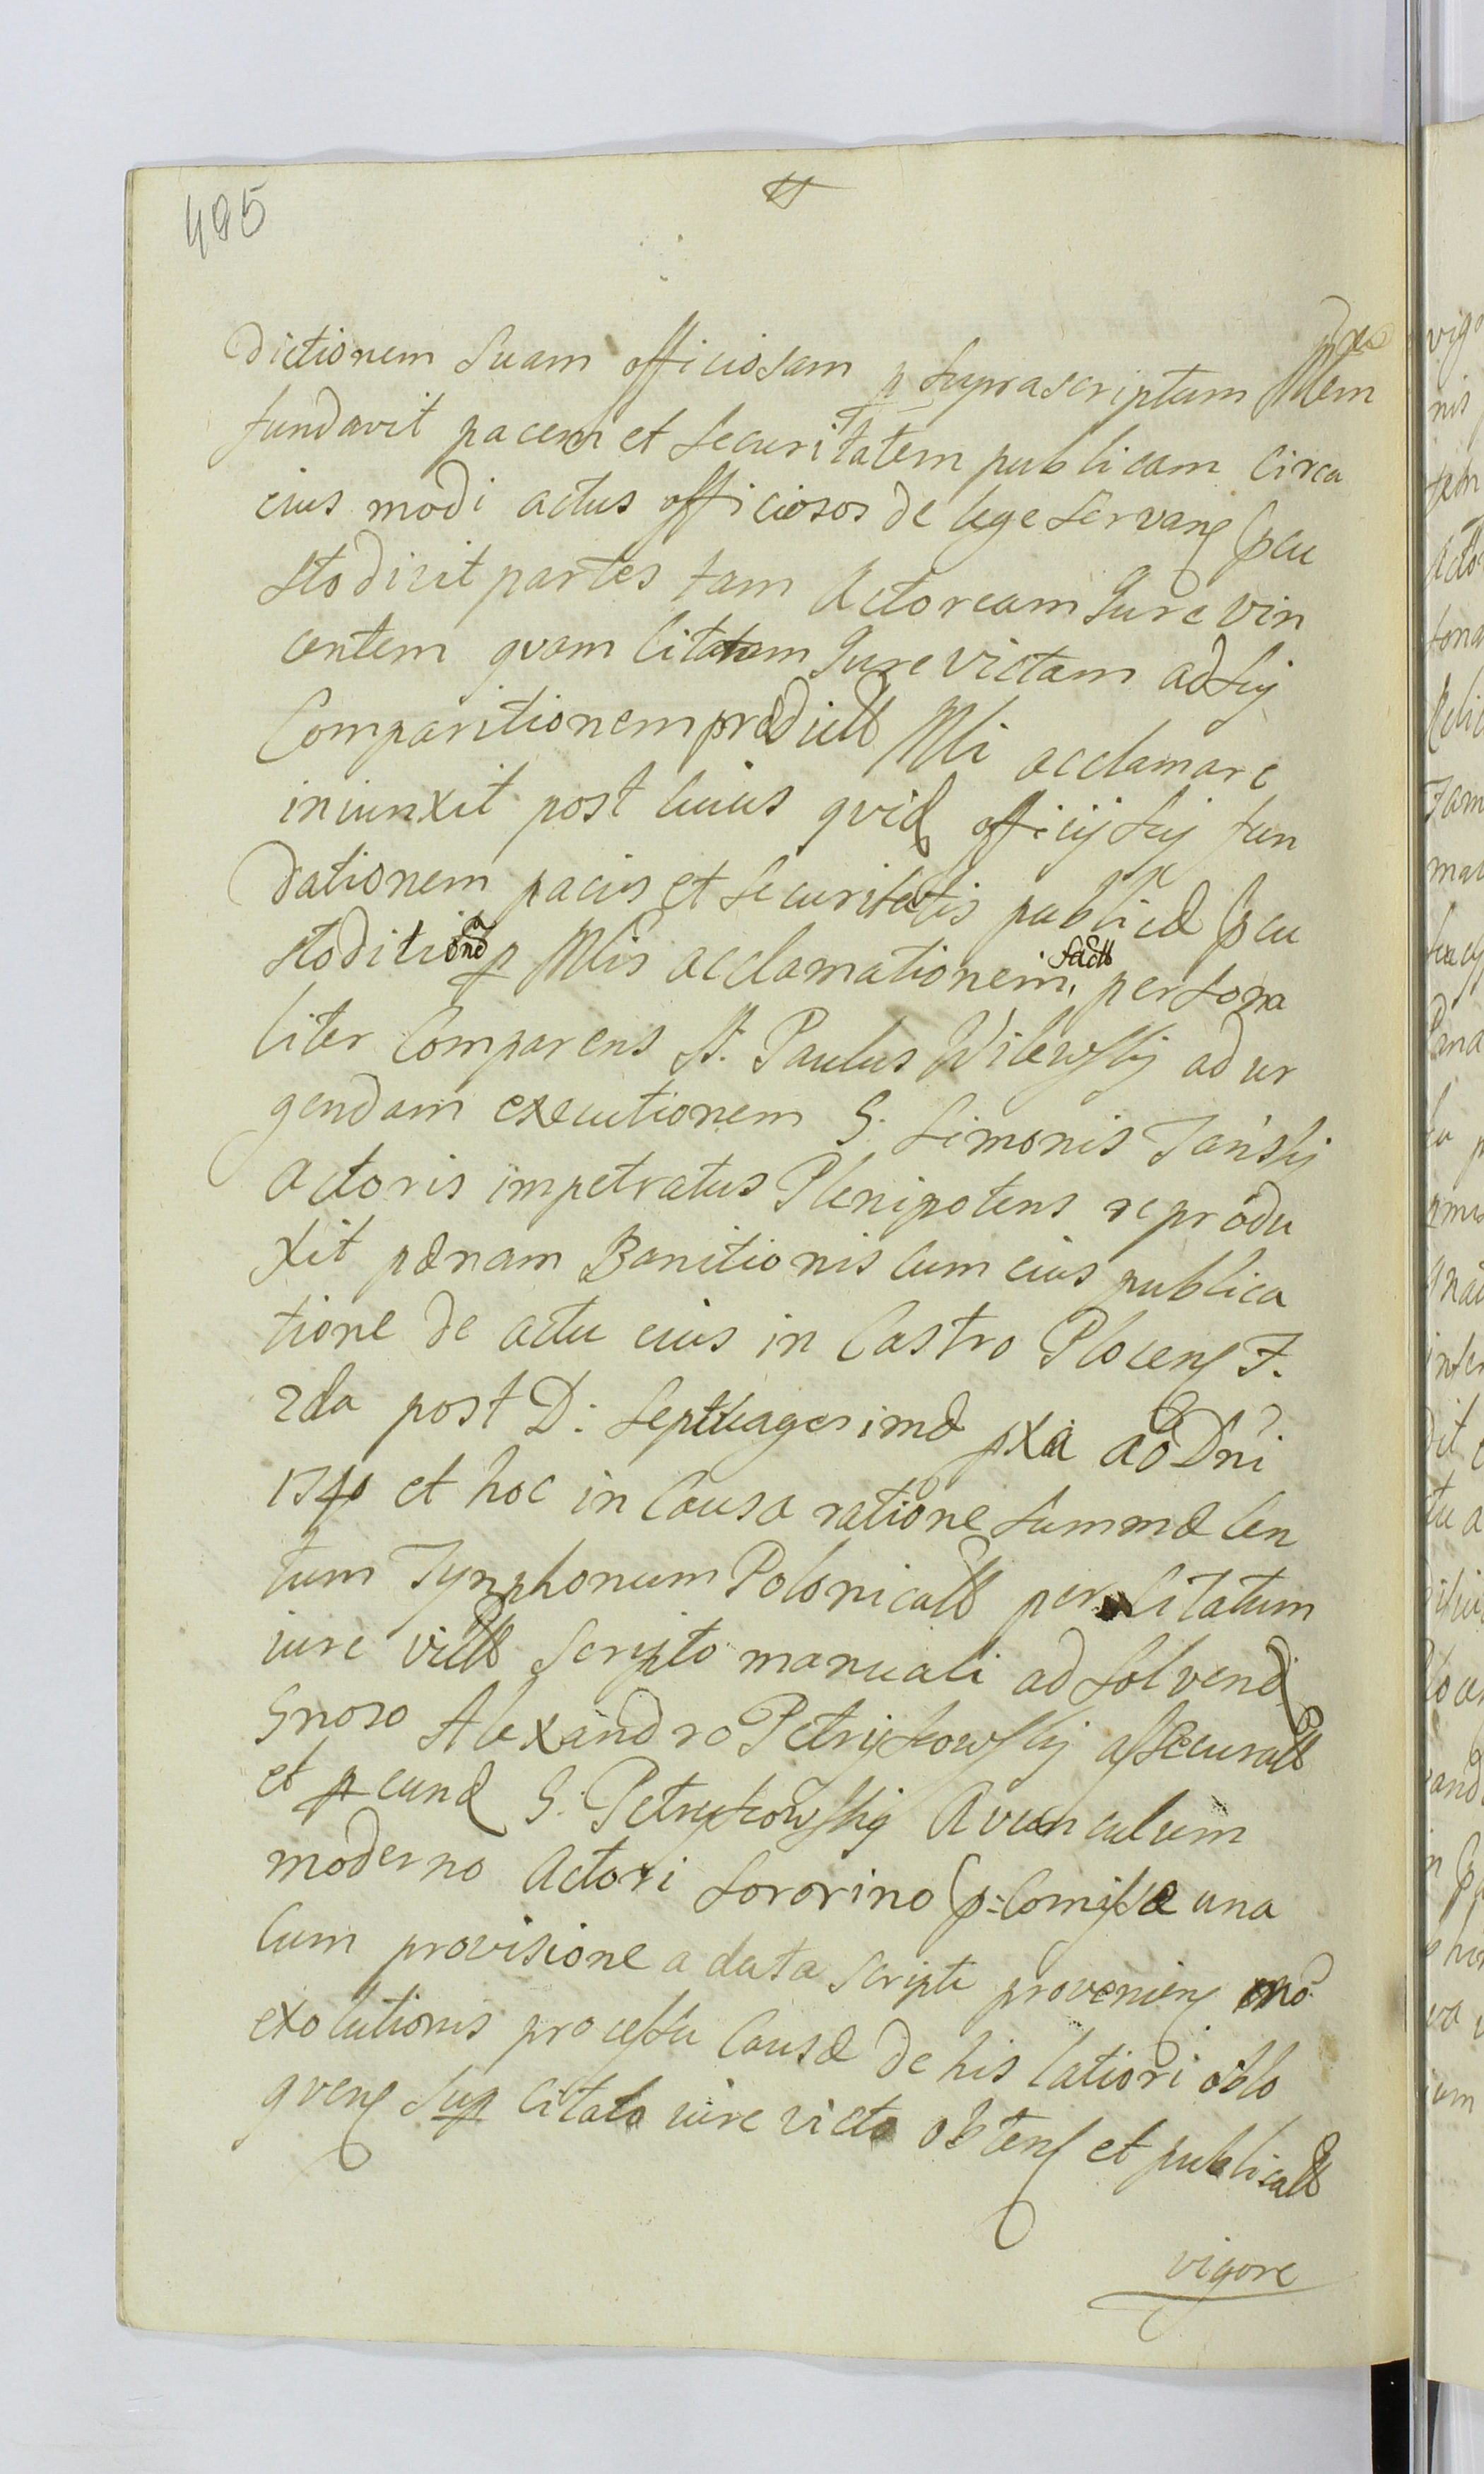 495
dictionem suam officiosam p suprascriptum Mlem
fundavit pacem et securitatem publicam circa
eius modi actus officiosos de lege servan pcu
stodivit partes tam Actoream Jure vin
centem quam Citatam Jure victam ad sui
Comparitionem prædict Mli acclamare
iniunxit post cuius quid officij sui fun
dationem pacis et securitatis publicæ pcu
stoditionē p Mlis acclamationem, fact persona
liter Comparens N. Paulus Wilewski ad ur
gendam executionem G. Simonis Tański
actoris impetratus Plenipotens reprodu
xit pænam Banitionis cum eius publica
tione de actu eius in Castro Plocen F.
2da post D: Septuagesimæ pxa aō Dni
1740 et hoc in Causa ratione summæ Cen
tum Tymphonum Polonicall per Citatum
iure vict scripto manuali ad solvend
Gnoso Alexandro Petrykowski assecurat
et p eund G. Petrykowski Avunculum
moderno Actori Sororino p: Comissæ una
cum provisione a data scripti provenien
exolutionis processu Causæ de his latiori oblo
quen sup citato iure victo obten et publicat
vigore